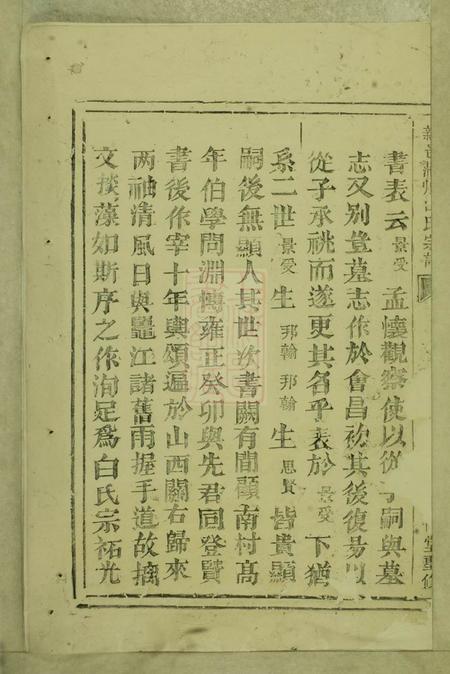 書表云景受孟懷觀察使以從子嗣與墓
志又別豈墓志作於會昌初其後復易以
從子承祧而遂更其名乎表於景受下猶
系二世景受生邦翰邦翰生思賢皆貴顯
嗣後無顯人其世次書闕有間顧南村高
年伯學問淵博雍正癸卯與先君同登賢
書後作宰十年輿頌遍於山西關右歸來
两袖清風日與鼉江諸舊雨握手道故摛
文掞藻如斯序之作洵足爲白氏宗祐光